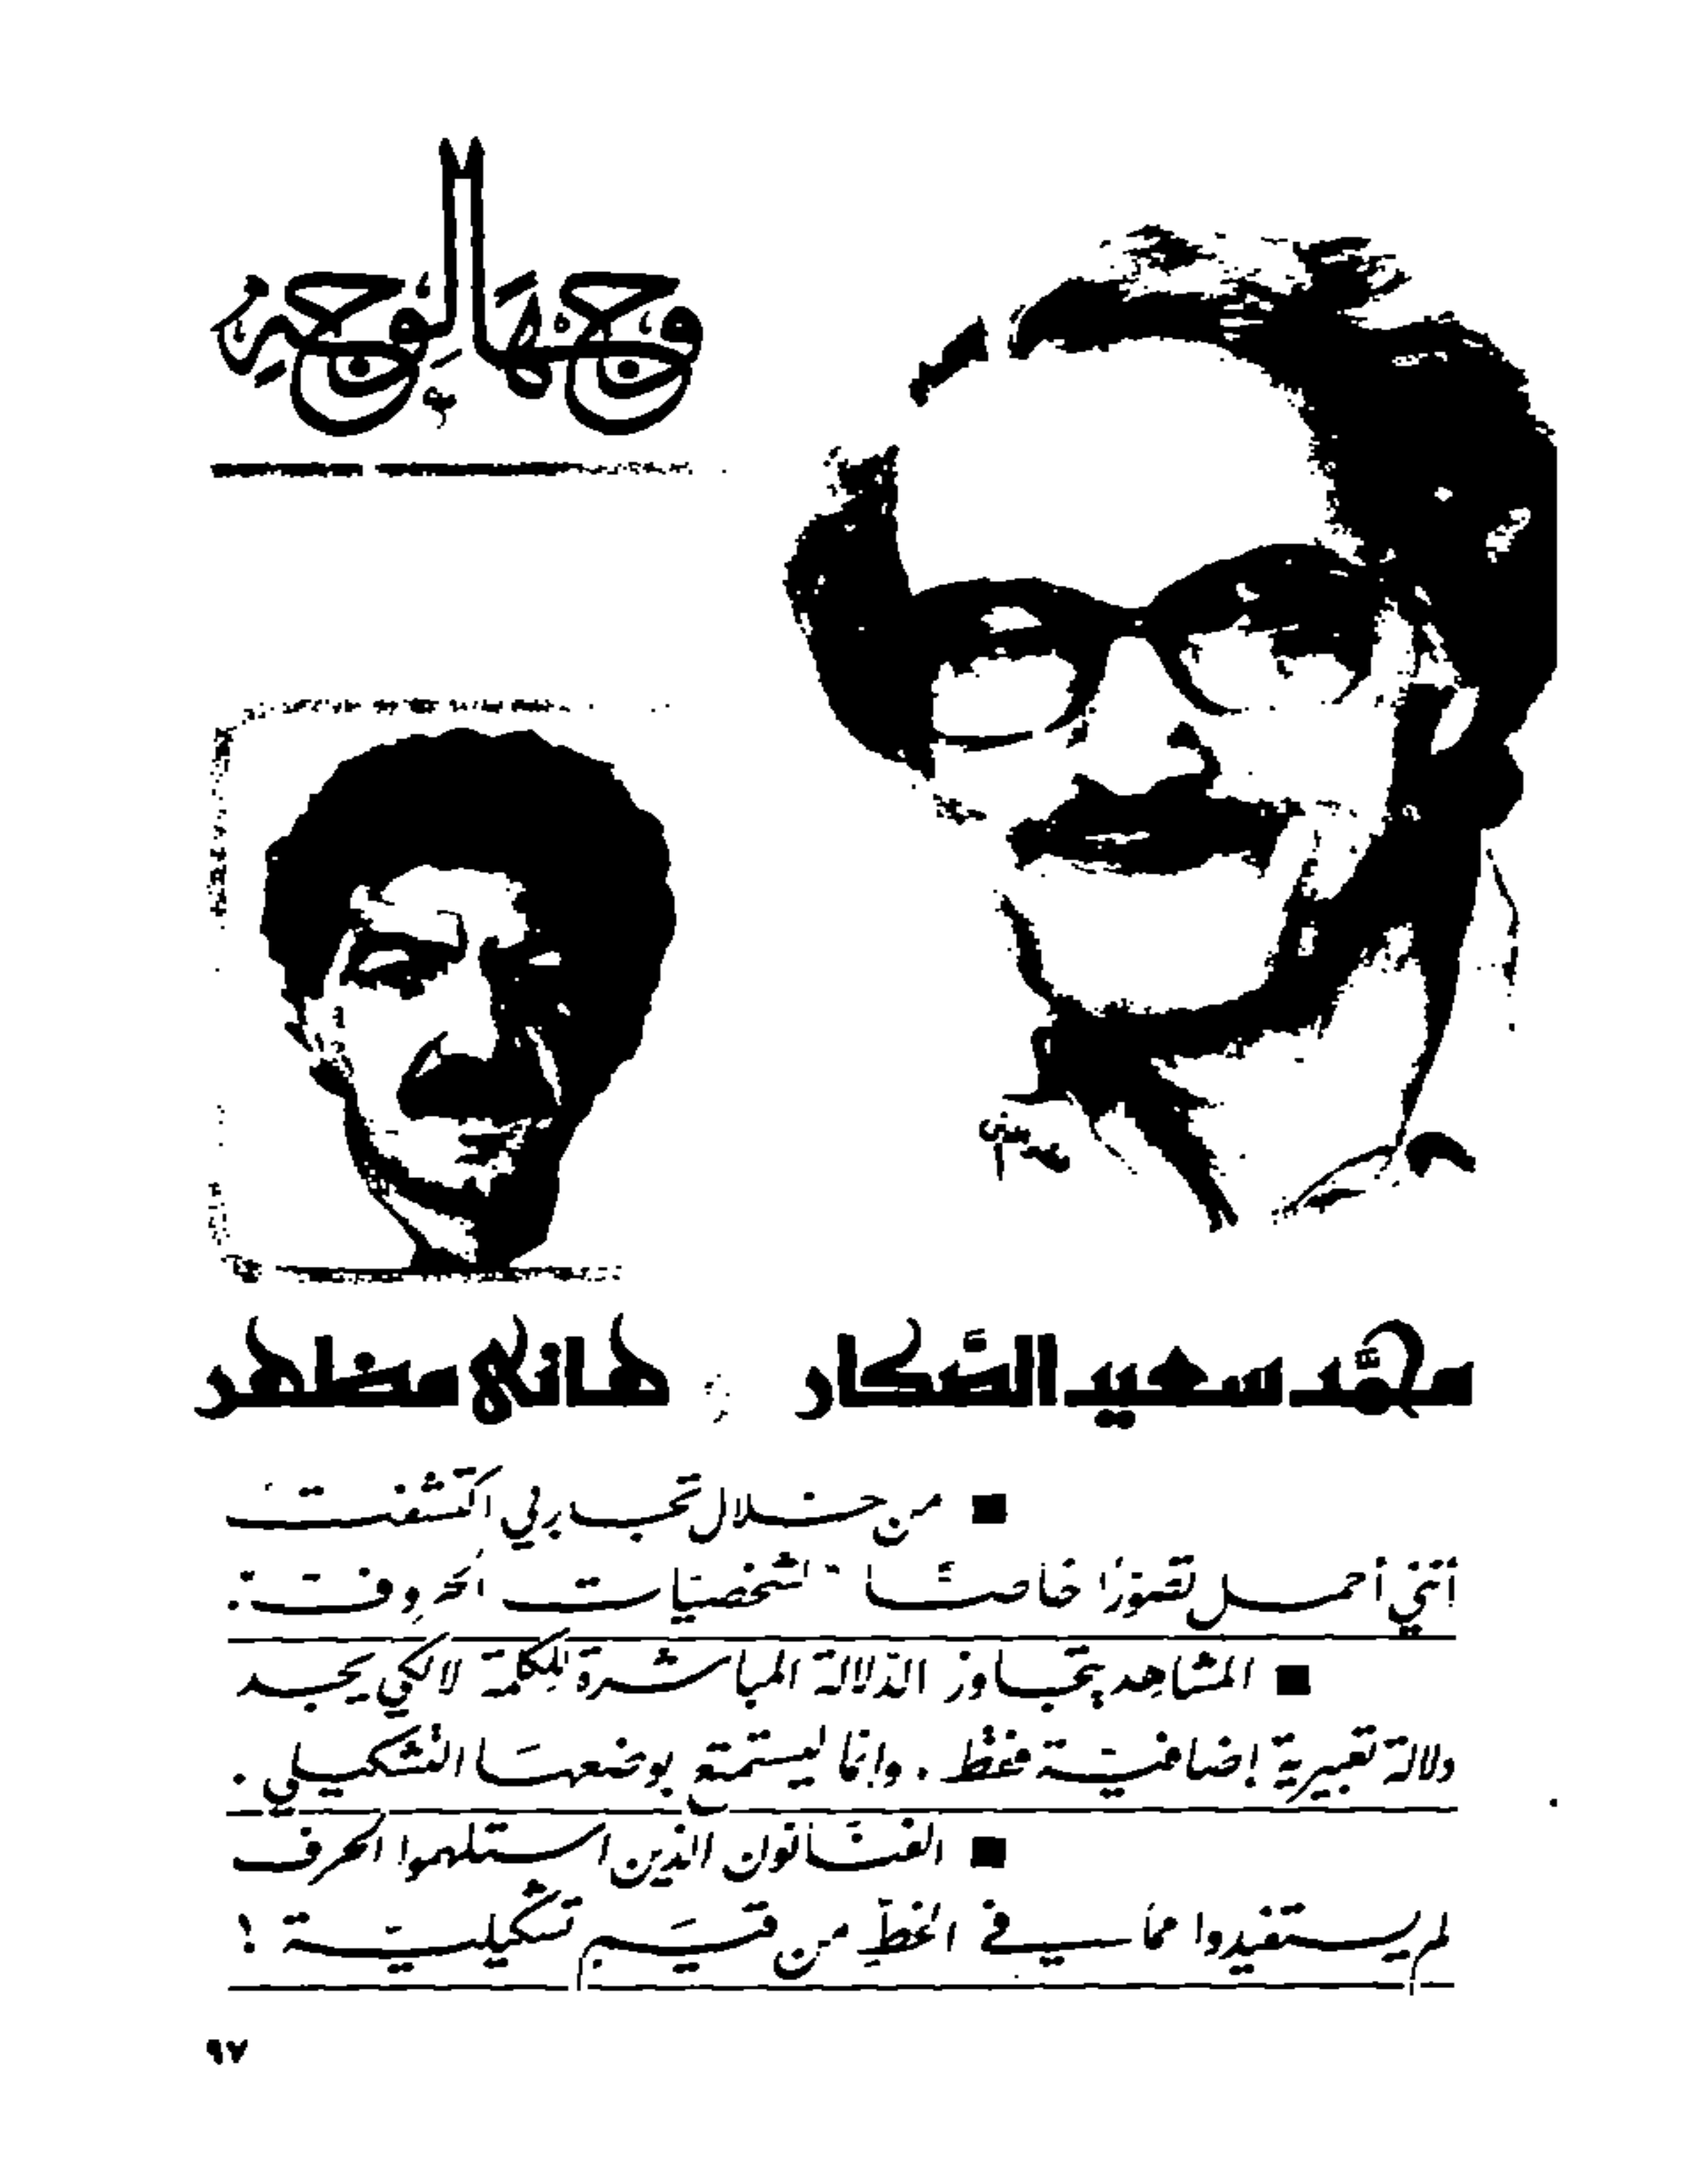 وجهاً لوجه
محمد سعيد الصكار
هاني مظهر
■ من خلال تجاربي اكتشفت
أنني أحمل تصوراً خاصاً لشخصيات الحروف.
■ المشاهد يتجاوز الدلالة المباشرة للكلمة لا لكي يجد
دلالة تعبيرية إضافية فقط. وإنما ليستمتع بوضعها التشكيلي.
■ الفنانون الذين استلهموا الحرف
لم يستفيدوا مما في الخط من قيم تشكيلية!
٩٧